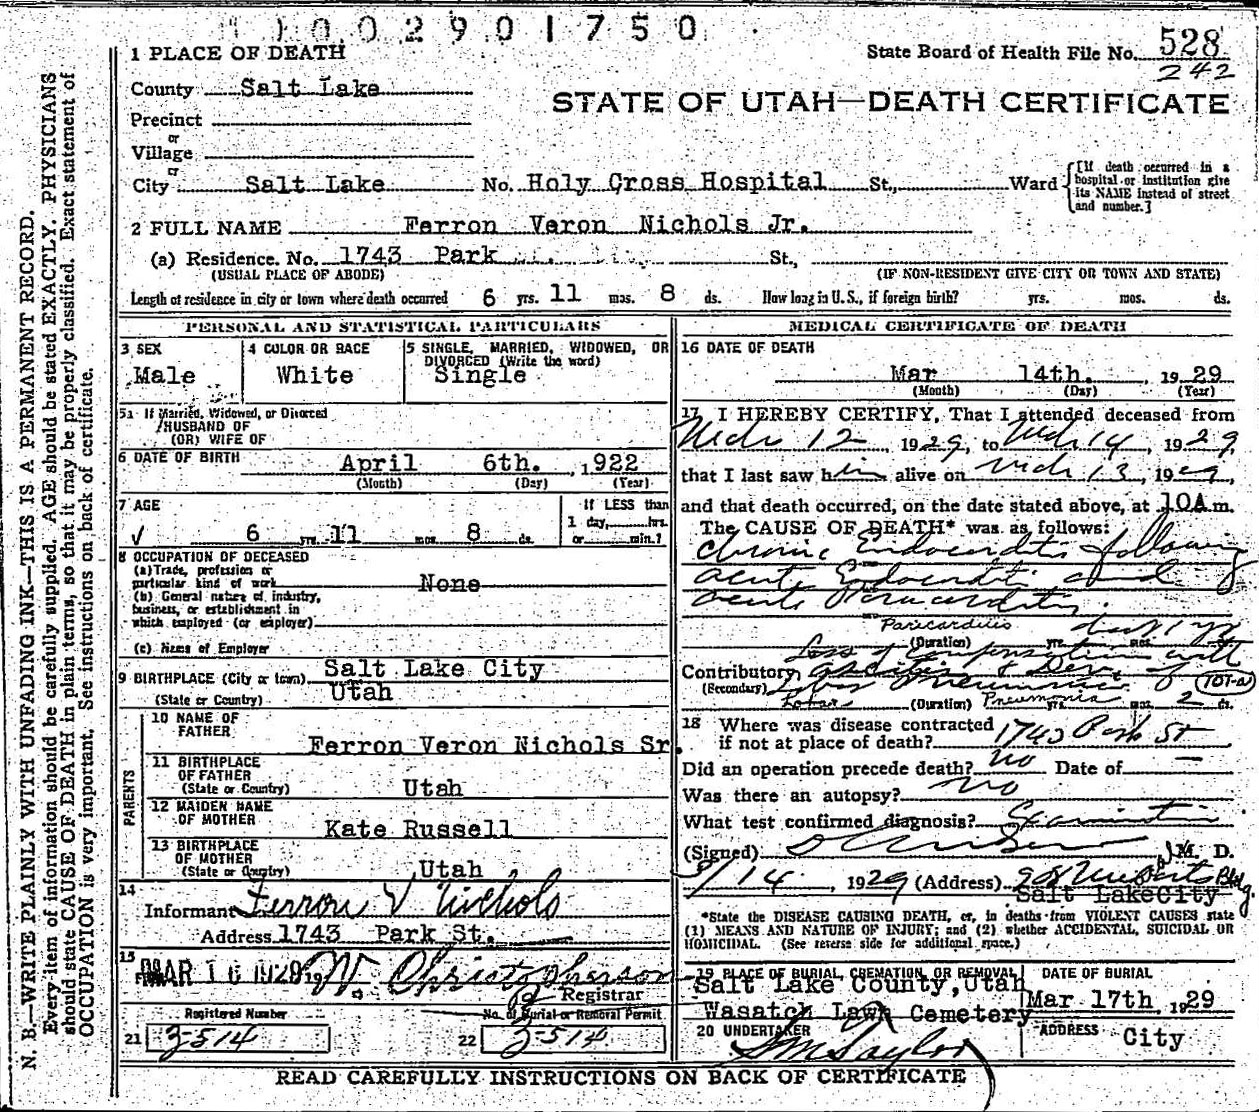 1002901750
1 PLACE OF DEATH
State Board of Health File No. 528
242
County Salt Lake
STATE OF UTAH—DEATH CERTIFICATE
Precinct
or
Village
or
City Salt Lake No. Holy Cross Hospital St., Ward [If death occurred in a hospital or institution give its NAME instead of street and number.]
2 FULL NAME Ferron Veron Nichols Jr.
(a) Residence. No. 1743 Park St.,
(USUAL PLACE OF ABODE) (IF NON-RESIDENT GIVE CITY OR TOWN AND STATE)
Length of residence in city or town where death occurred 6 yrs. 11 mos. 8 ds. How long in U.S., if foreign birth? yrs. mos. ds.
PERSONAL AND STATISTICAL PARTICULARS
3 SEX
Male
4 COLOR OR RACE
White
5 SINGLE, MARRIED, WIDOWED, OR
DIVORCED (Write the word)
Single
5a If Married, Widowed, or Divorced
HUSBAND OF
(OR) WIFE OF
6 DATE OF BIRTH
April 6th. , 1922
(Month) (Day) (Year)
7 AGE
6 yrs. 11 mos. 8 ds.
If LESS than
1 day, hrs.
or min.?
8 OCCUPATION OF DECEASED
(a) Trade, profession or
particular kind of work None
(b) General nature of industry,
business, or establishment in
which employed (or employer)
(c) Name of Employer
9 BIRTHPLACE (City or town) Salt Lake City
(State or Country) Utah
PARENTS
10 NAME OF
FATHER
Ferron Veron Nichols Sr.
11 BIRTHPLACE
OF FATHER
(State or Country) Utah
12 MAIDEN NAME
OF MOTHER
Kate Russell
13 BIRTHPLACE
OF MOTHER
(State or Country) Utah
14
Informant Ferron V Nichols
Address 1743 Park St.
15
MAR 16 1929 19 W. Christopherson
Registrar
Registered Number
21 3514
No. of Burial or Removal Permit
22 3514
MEDICAL CERTIFICATE OF DEATH
16 DATE OF DEATH
Mar 14th. , 1929
(Month) (Day) (Year)
17 I HEREBY CERTIFY, That I attended deceased from
Mch 12 , 1929, to Mch 14 , 1929,
that I last saw him alive on Mch 13, 1929,
and that death occurred, on the date stated above, at 10A m.
The CAUSE OF DEATH* was as follows:
Chronic Endocarditis following
acute Endocarditis and
acute Paracarditis.
Paricarditis
(Duration) yrs. mos. ds.
Loss of Compensation with
Contributory
(Secondary) Lobar Pneumonia
101-a
Lobar (Duration) Pneumonia yrs. mos. 2 ds.
18 Where was disease contracted
if not at place of death? 1743 Park St
Did an operation precede death? no Date of —
Was there an autopsy? No
What test confirmed diagnosis? Examination
(Signed) M. D.
3/14 , 1929 (Address) Bldg.
Salt Lake City
*State the DISEASE CAUSING DEATH, or, in deaths from VIOLENT CAUSES state
(1) MEANS AND NATURE OF INJURY; and (2) whether ACCIDENTAL, SUICIDAL OR
HOMICIDAL. (See reverse side for additional space.)
19 PLACE OF BURIAL, CREMATION, OR REMOVAL
Salt Lake County, Utah
Wasatch Lawn Cemetery
DATE OF BURIAL
Mar 17th , 1929
20 UNDERTAKER
S M Taylor
ADDRESS
City
READ CAREFULLY INSTRUCTIONS ON BACK OF CERTIFICATE
N. B.—WRITE PLAINLY WITH UNFADING INK—THIS IS A PERMANENT RECORD.
Every item of information should be carefully supplied. AGE should be stated EXACTLY. PHYSICIANS
should state CAUSE OF DEATH in plain terms, so that it may be properly classified. Exact statement of
OCCUPATION is very important. See instructions on back of certificate.